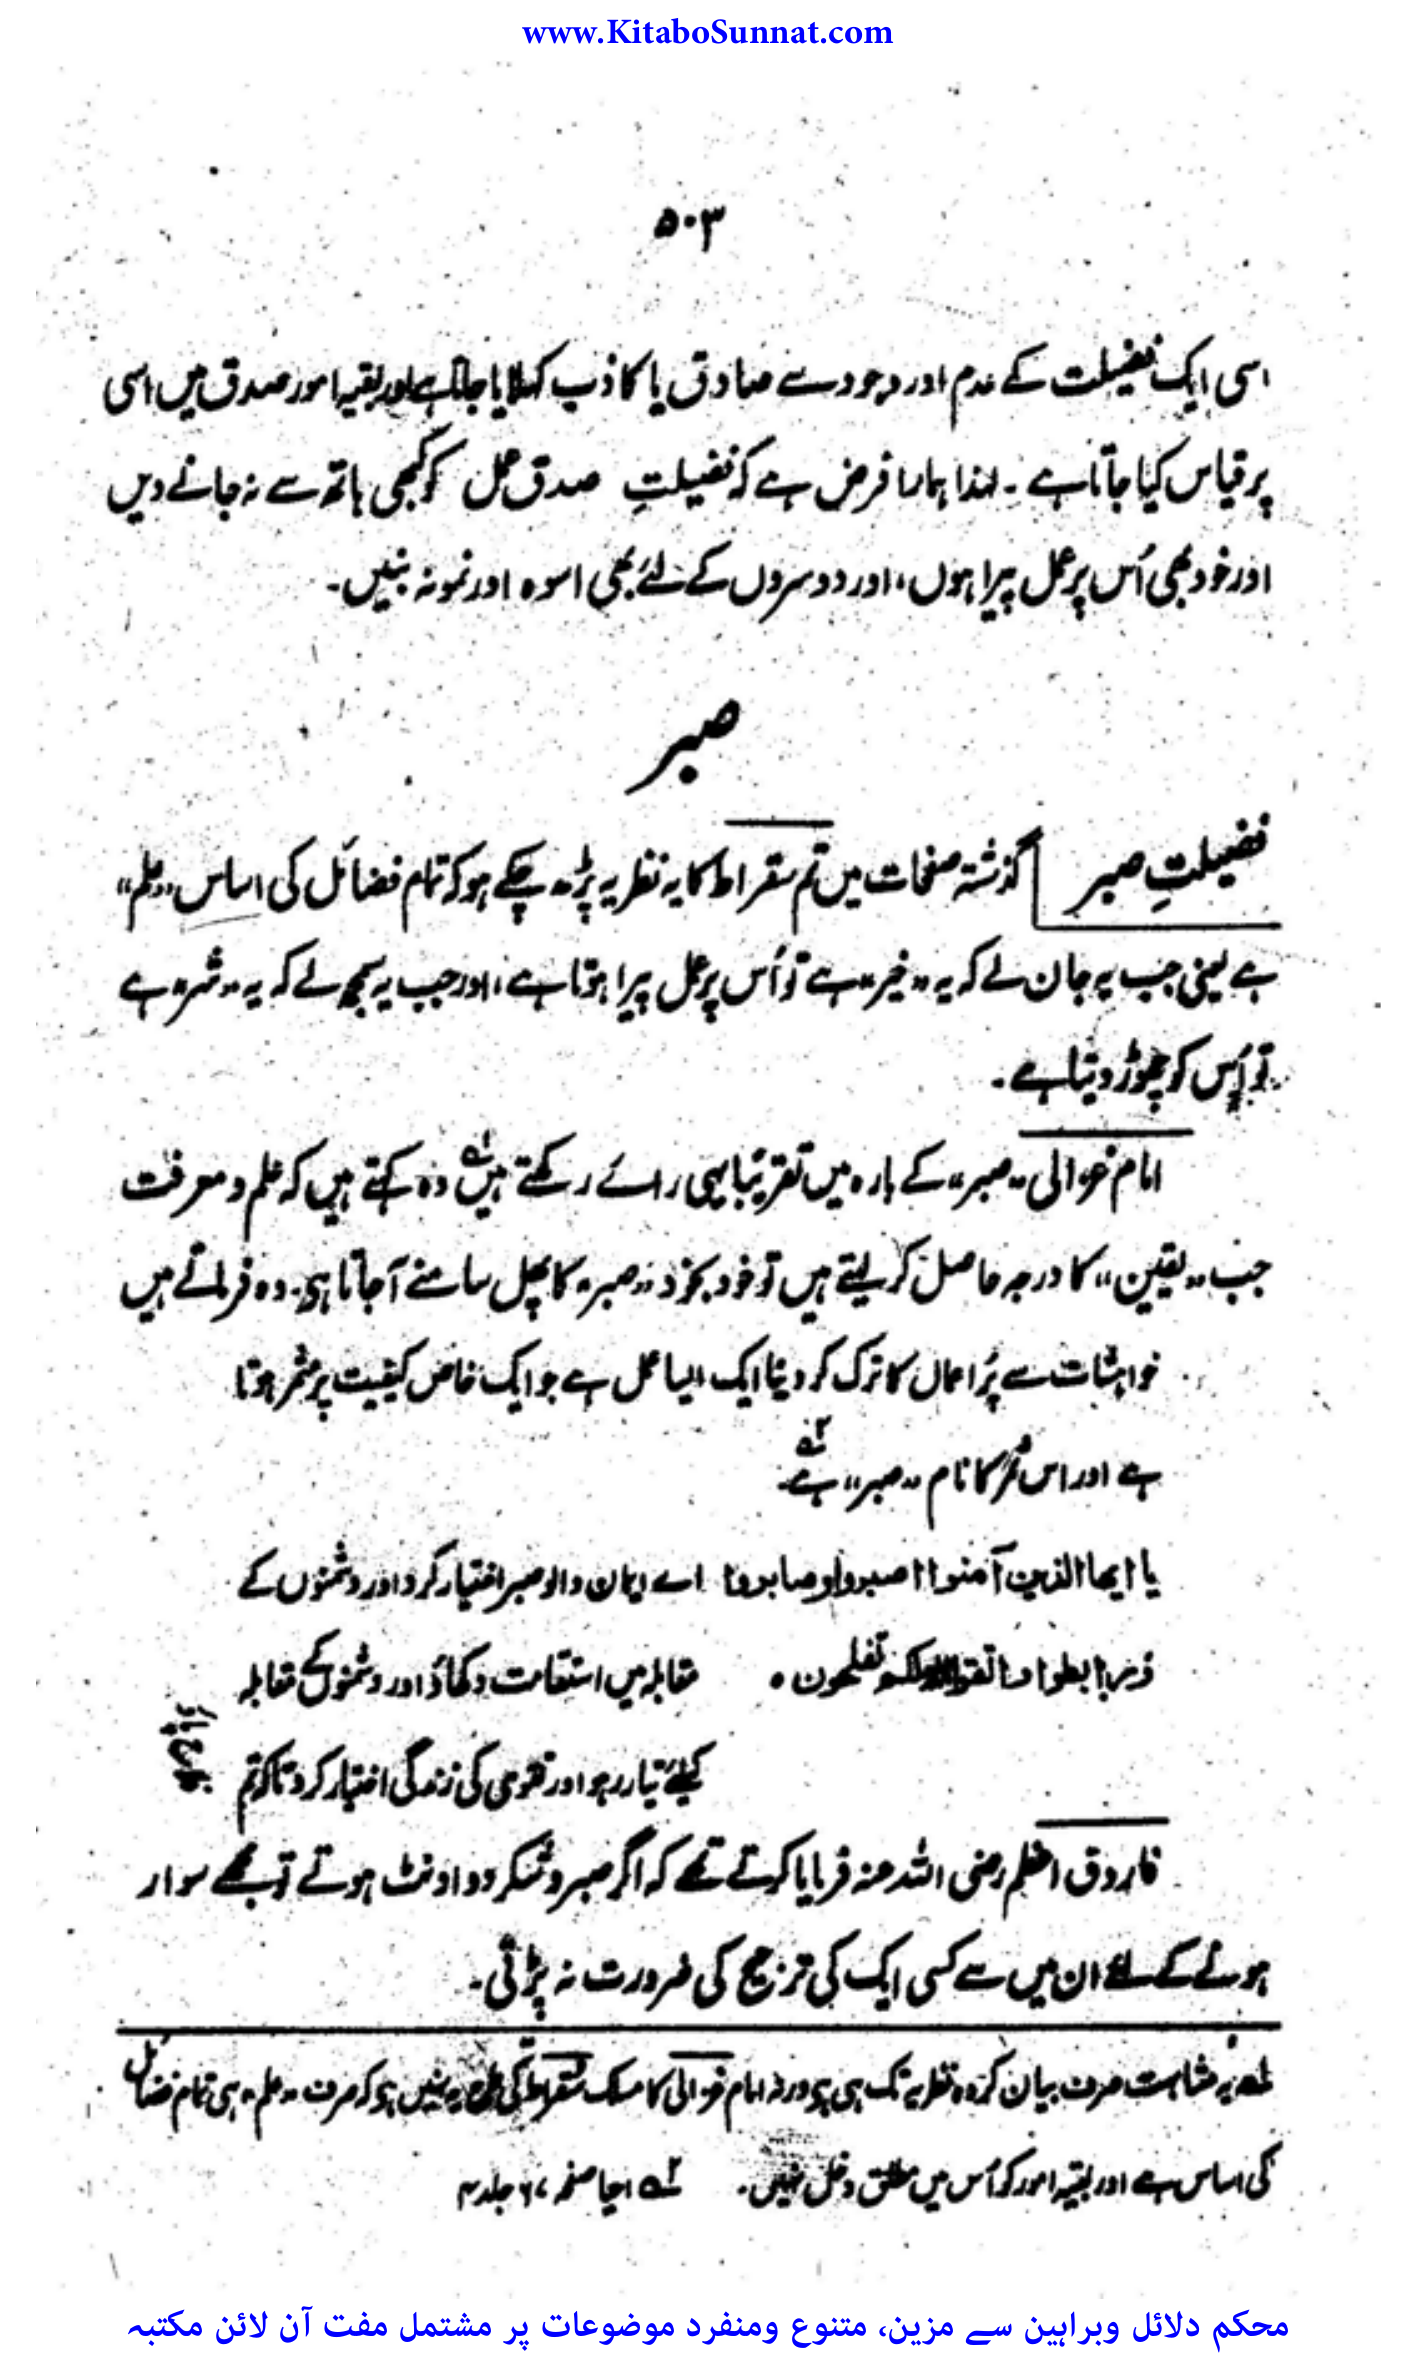 www.KitaboSunnat.com
۵۰۳
اسی ایک فضیلت کے عدم اور وجود سے صادق یا کاذب کہلایا جاتا ہے اور بقیہ امور صدق میں اسی
پر قیاس کیا جاتا ہے۔ لہذا ہمارا فرض ہے کہ فضیلتِ صدق عمل کو کبھی ہاتھ سے نہ جانے دیں
اور خود بھی اُس پر عمل پیرا ہوں، اور دوسروں کے لئے بھی اسوہ اور نمونہ بنیں۔
صبر
فضیلتِ صبر گذشتہ صفحات میں تم سقراط کا یہ نظریہ پڑھ چکے ہو کہ تمام فضائل کی اساس "علم"
ہے یعنی جب یہ جان لے کہ یہ "خیر" ہے تو اُس پر عمل پیرا ہوتا ہے، اور جب یہ سمجھ لے کہ یہ "شر" ہے
تو اُس کو چھوڑ دیتا ہے۔
امام غزالی "صبر" کے بارہ میں تقریبًا یہی رائے رکھتے ہیں لہ وہ کہتے ہیں کہ علم و معرفت
جب "یقین" کا درجہ حاصل کر لیتے ہیں تو خود بخود "صبر" کا پھل سامنے آجاتا ہی۔ وہ فرماتے ہیں
خواہشات سے پُر اعمال کا ترک کر دینا ایک ایسا عمل ہے جو ایک خاص کیفیت پر مثمر ہوتا
ہے اور اس ثمر کا نام "صبر" ہے ۲ہ
یا ایھا الذین آمنوا اصبروا وصابروا اے ایمان والو صبر اختیار کرو اور دشمنوں کے
ورابطوا واتقوا اللہ لعلکم تفلحون ہ مقابلہ میں استقامت دکھاؤ اور دشمنوں کے مقابلہ
کیلئے تیار رہو اور تقوی کی زندگی اختیار کرو تاکہ تم
فاروق اعظم رضی اللہ عنہ فرمایا کرتے تھے کہ اگر صبر و شکر دو اونٹ ہوتے تو مجھے سوار
ہونے کے لئے ان میں سے کسی ایک کی ترجیح کی ضرورت نہ پڑتی۔
لہ یہ مشابہت صرف بیان کردہ نظریہ تک ہی ہی ورنہ امام غزالی کا مسلک سقراط کی طرح یہ نہیں ہی کہ صرف "علم" ہی تمام فضائل
کی اساس ہے اور بقیہ امور کو اُس میں مطلق دخل نہیں۔ ۲ہ احیا صفحہ ۶۷ جلد ۴
محکم دلائل وبراہین سے مزین، متنوع ومنفرد موضوعات پر مشتمل مفت آن لائن مکتبہ